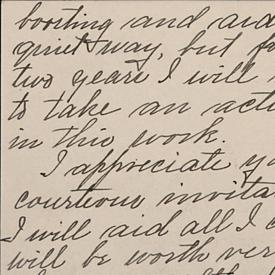 boosting and aid
quiet way, but f
two years I will
to take an acti
in this work.
I appreciate yo
courteous invita
I will aid all I c
will be worth ver